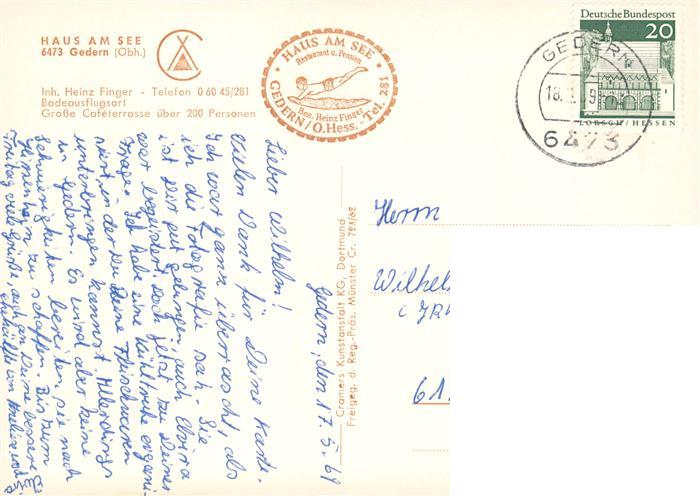 HAUS AM SEE
6473 Gedern (Obh.)
Inh. Heinz Finger - Telefon 0 60 45/281
Badeausflugsort
Große Caféterrasse über 200 Personen
HAUS AM SEE
Restaurant u. Pension
Bes. Heinz Finger
GEDERN/O.Hess. - Tel. 281
Deutsche Bundespost
20
LORSCH/HESSEN
GEDERN
6473
Gedern, den 17. 5. 69
Lieber Wilhelm!
Vielen Dank für Deine Karte.
Ich war ganz überrascht, als
ich die Fotografie sah. Sie
ist Dir gut gelungen, auch
war begeistert. Doch jetzt zu Deiner
Frage. Ich habe eine Kühltruhe organi-
siert in der Du Deine Fleischwaren
unterbringen kannst. Allerdings
in Gedern. Es wird aber keine
Schwierigkeiten bereiten, sie nach
zu schaffen. Bis zum
Freitag viele Grüße, auch an Deine bessere
Ehehälfte von
Cramers Kunstanstalt KG, Dortmund
Freigeg. d. Reg.-Präs. Münster Cr. 723/62
Herrn
Wilhel
61